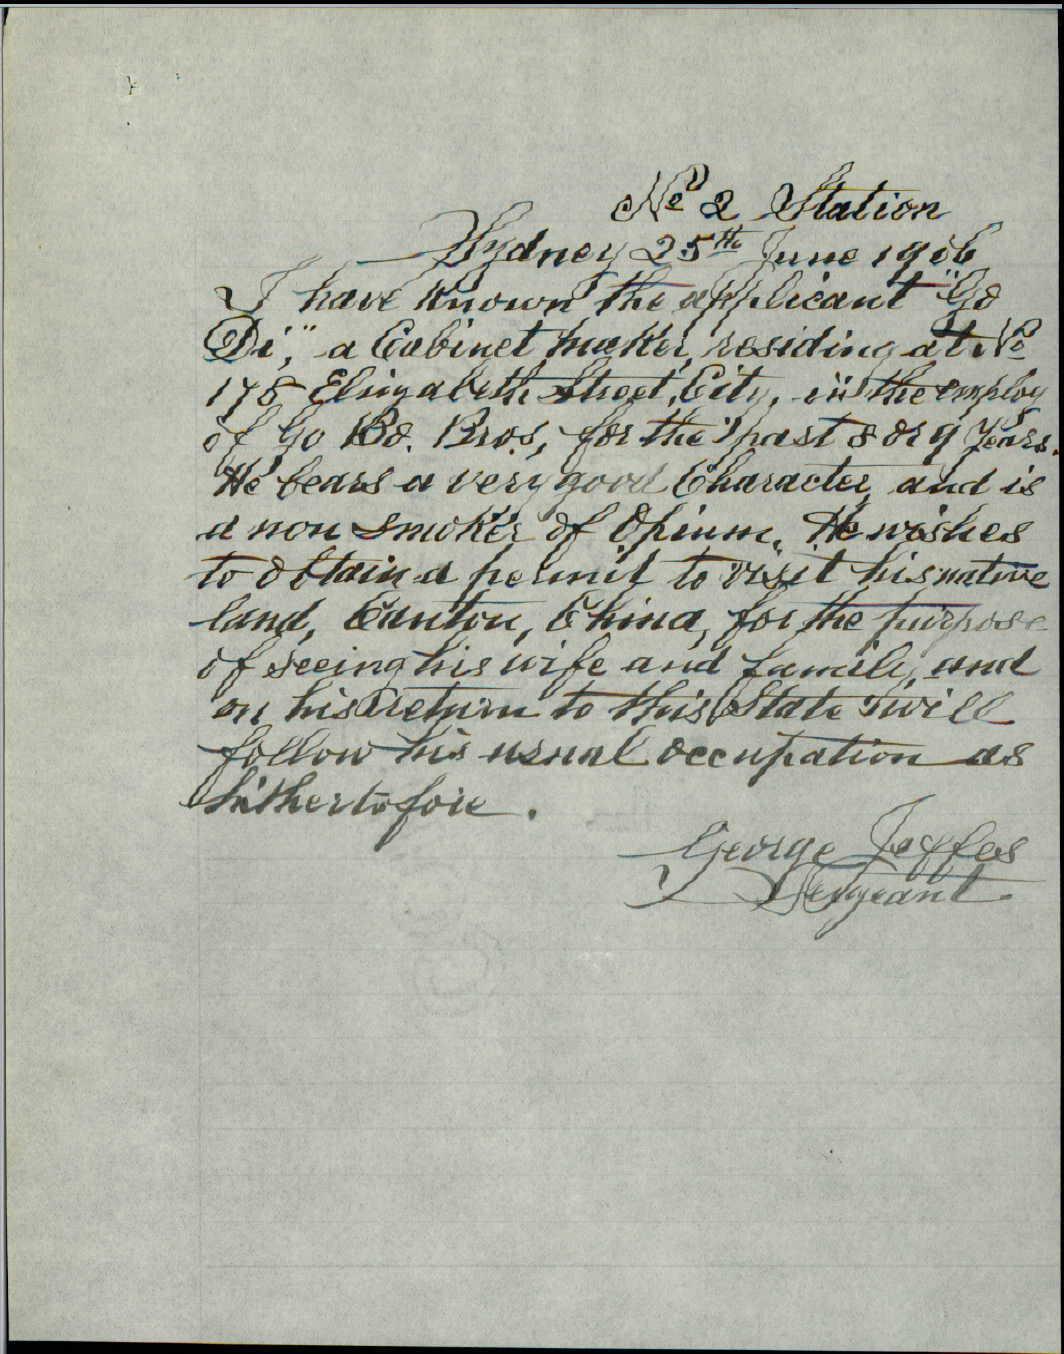 No 2 Station
Sydney 25th June 1906
I have known the applicant "Go
Di," a Cabinet maker, residing at No
178 Elizabeth Street, City, in the employ
of Go Bo. Bros., for the past 8 or 9 Years.
He bears a very good Character, and is
a non smoker of Opium. He wishes
to obtain a permit to visit his native
land, Canton, China, for the purpose
of seeing his wife and family, and
on his return to this State will
follow his usual occupation as
hithertofore.
George Jeffes
Sergeant